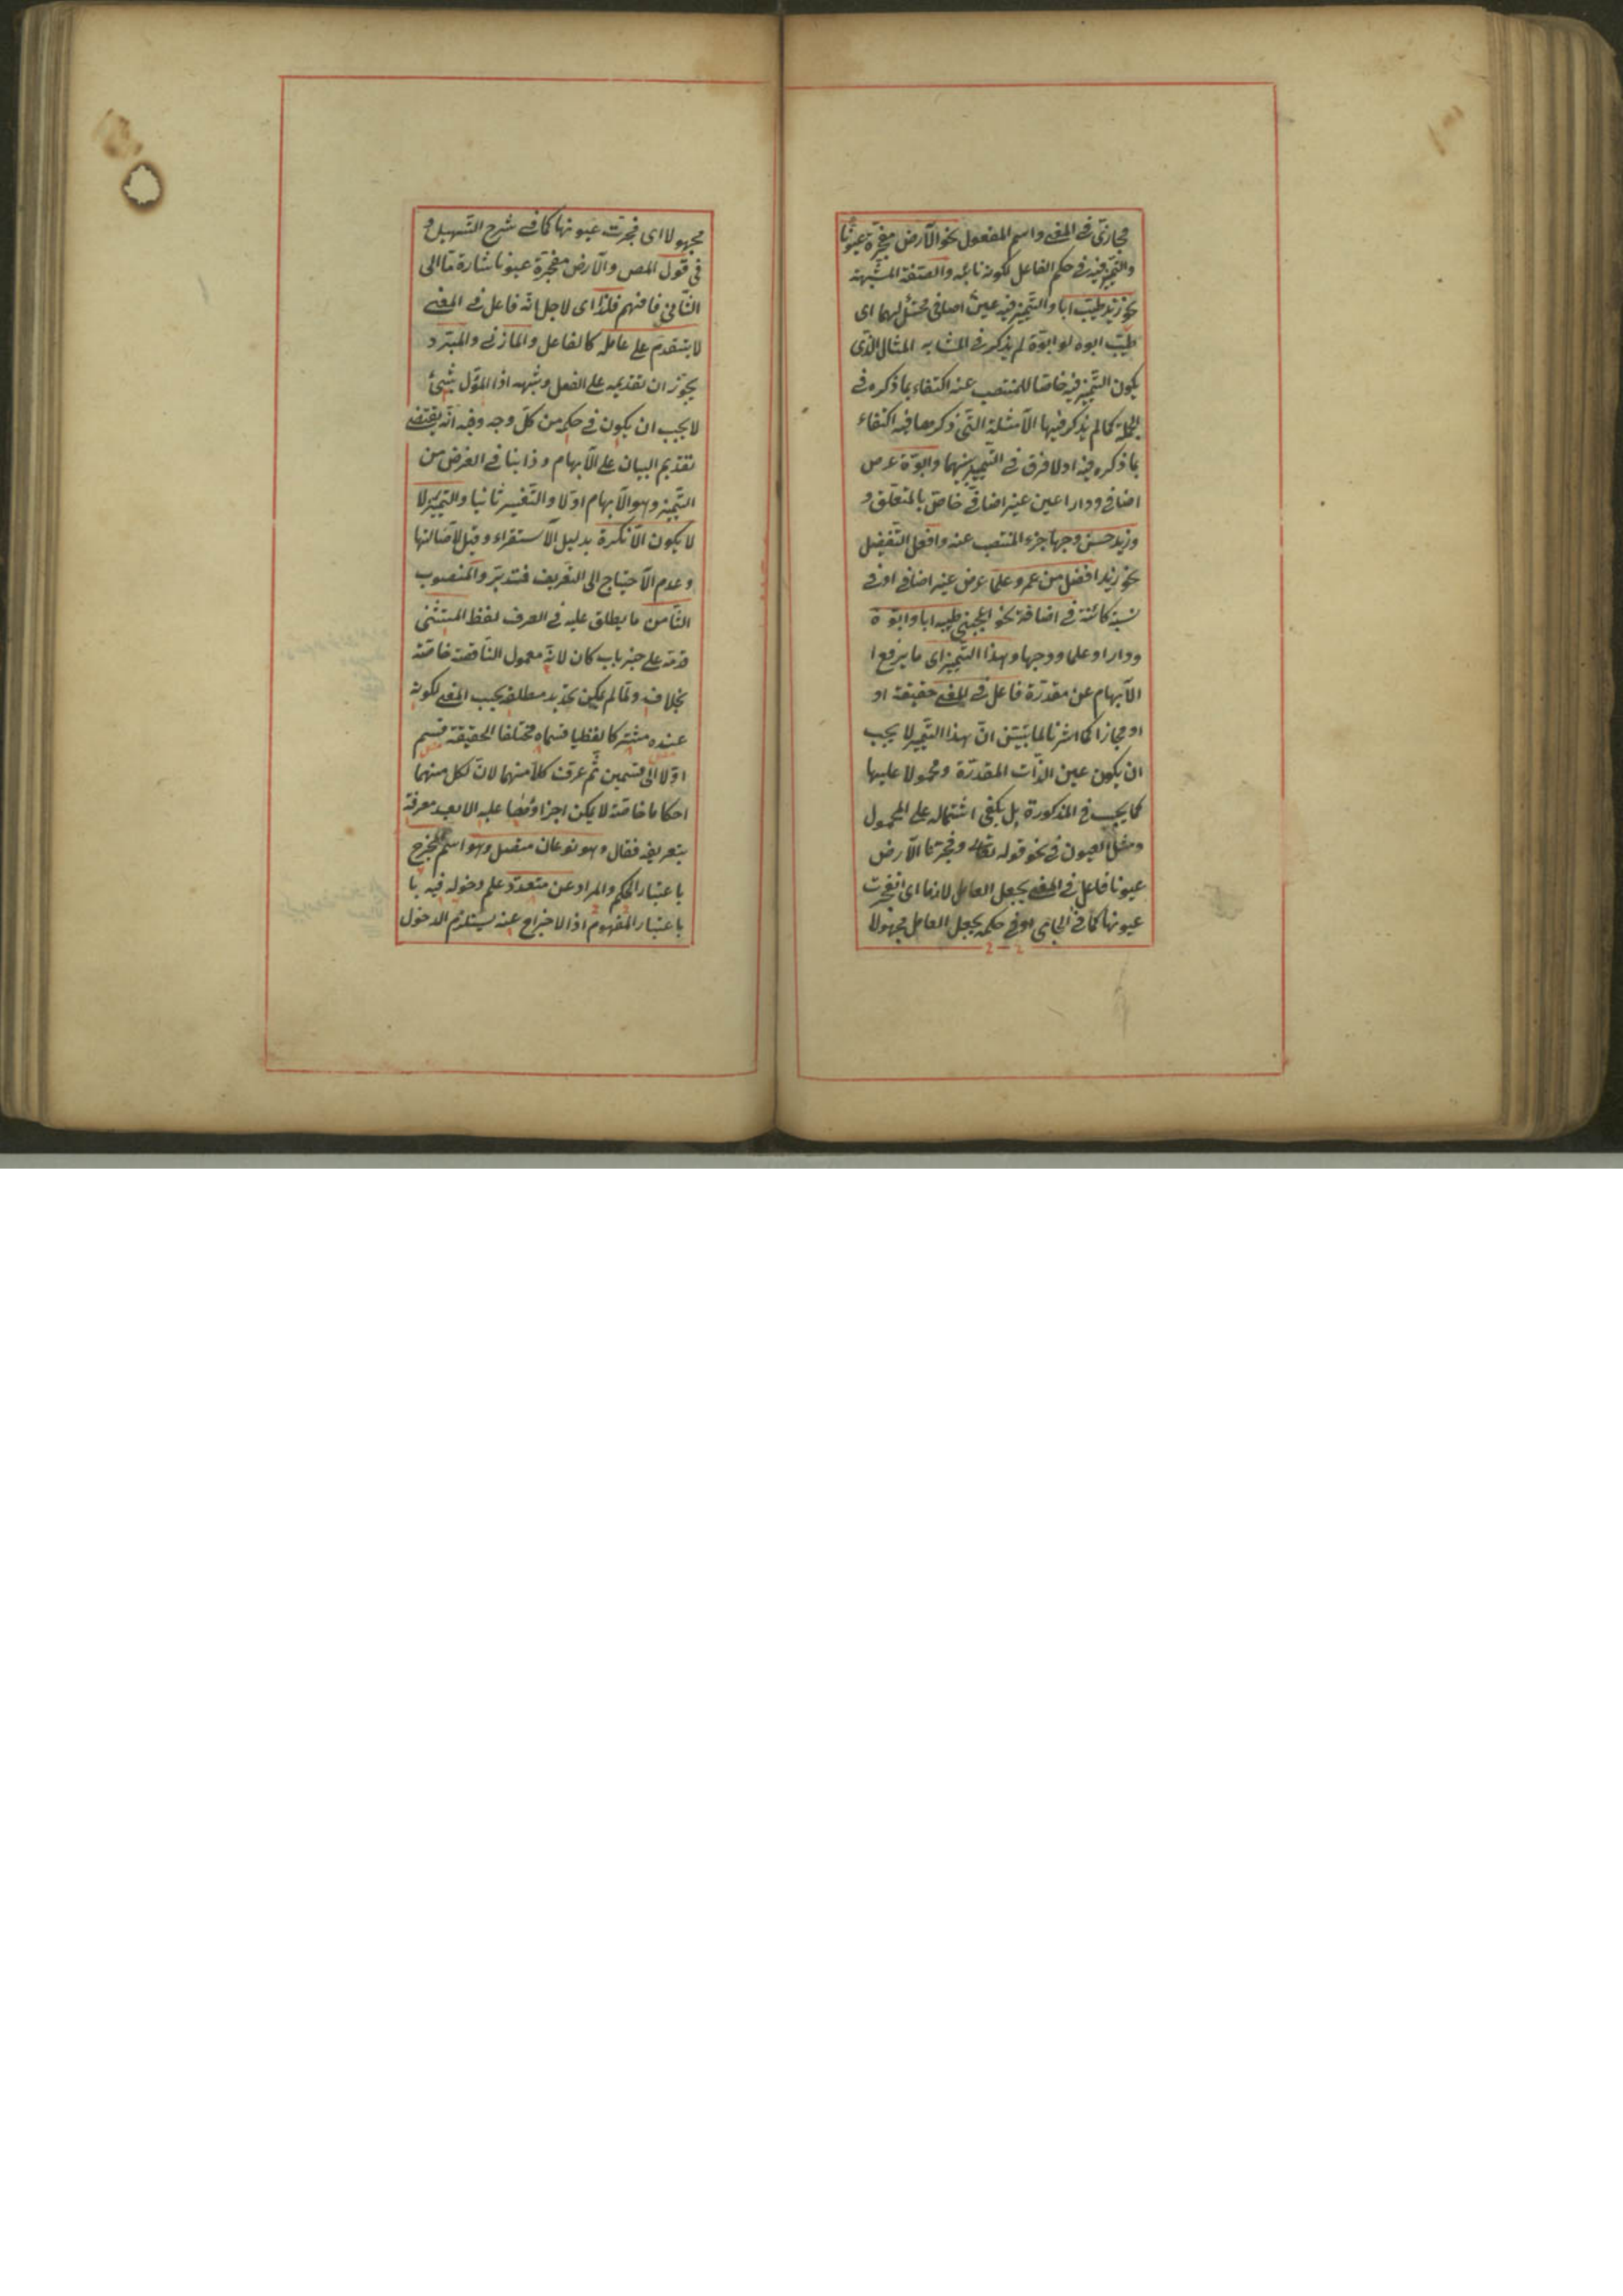 مجازىّ فى المعنى واسم المفعول نحو الارض مفجرة عيونًا
والتّميز فيه فى حكم الفاعل لكونه نائبه والصّفة المشبهة
نحو زيد طيب ابا والتّميز فيه عين اضافى محتمل لهما اى
طيّب ابوه او ابوّة لم يذكر فى المشابه المثال الذى
يكون التّميز فيه خاصّا للمنتصب عنه اكتفاء بما ذكره فى
الجملة كما لم يذكر فيها الامثلة التى ذكرها فيه اكتفاء
بما ذكره فيه اولا فرق فى التّميز بينهما وابوّة عرض
اضافى ودارا عين غير اضافىّ خاصّ بالمتعلّق و
وزيد حسن وجها جزء المنتصب عنه وافعل التفضيل
نحو زيد افضل من عمرو علما عرض غير اضافى او فى
نسبة كائنة فى اضافة نحو اعجبنى طيبه ابا وابوّة
ودارا وعلما ووجها وهذا التّميز اى ما يرفع ا
الابهام عن مقدّرة فاعل فى المعنى حقيقة او
او مجازا كما اشرنا لما بيّن انّ هذا التّميز لا يجب
ان يكون عين الذّات المقدّرة ومحمولا عليها
كما يجب فى المذكورة بل يكفى اشتماله على المحمول
ومثل العيون فى نحو قوله تعالى وفجرنا الارض
عيونا فاعل فى المعنى بجعل العامل لازما اى انفجرت
عيونها كما فى الجامى او فى حكمه بجعل العامل مجهولا
مجهولا اى فجرت عيونها كما فى شرح التّسهيل و
فى قول المص والارض مفجرّة عيونا اشارة ما الى
الثّانى فافهم فلذا اى لاجل انّه فاعل فى المعنى
لا يتقدّم على عامله كالفاعل والمازنى والمبرّد
يجوّز ان تقديمه على الفعل وشبهه اذا المؤوّل بشئ
لا يجب ان يكون فى حكمه من كلّ وجه وفيه انّه يقتضى
تقديم البيان على الابهام وذا ينافى الغرض من
التّميز وهو الابهام اوّلا والتّفسير ثانيا والتّميز لا
لا يكون الّا نكرة بدليل الاستقراء وقيل لاصالتها
وعدم الاحتياج الى التعريف فتدبّر والمنصوب
الثّامن ما يطلق عليه فى العرف لفظ المستثنى
قدّمه على خبر باب كان لانّه معمول النّاقصة خاصّة
بخلافه ولمّا لم يمكن تحديد مطلقه بحسب المعنى لكونه
عنده مشتركا لفظيا قسماه مختلفا الحقيقة قسم
اوّلا الى قسمين ثمّ عرّف كلّا منهما لانّ لكل منهما
احكاما خاصّة لا يمكن اجراؤها عليه الا بعد معرفة
بتعريفه فقال وهو نوعان متصل وهو اسم مخرج
باعتبار الحكم والمراد عن متعدّد علم دخوله فيه با
باعتبار المفهوم اذ الاخراج عنه يستلزم الدخول